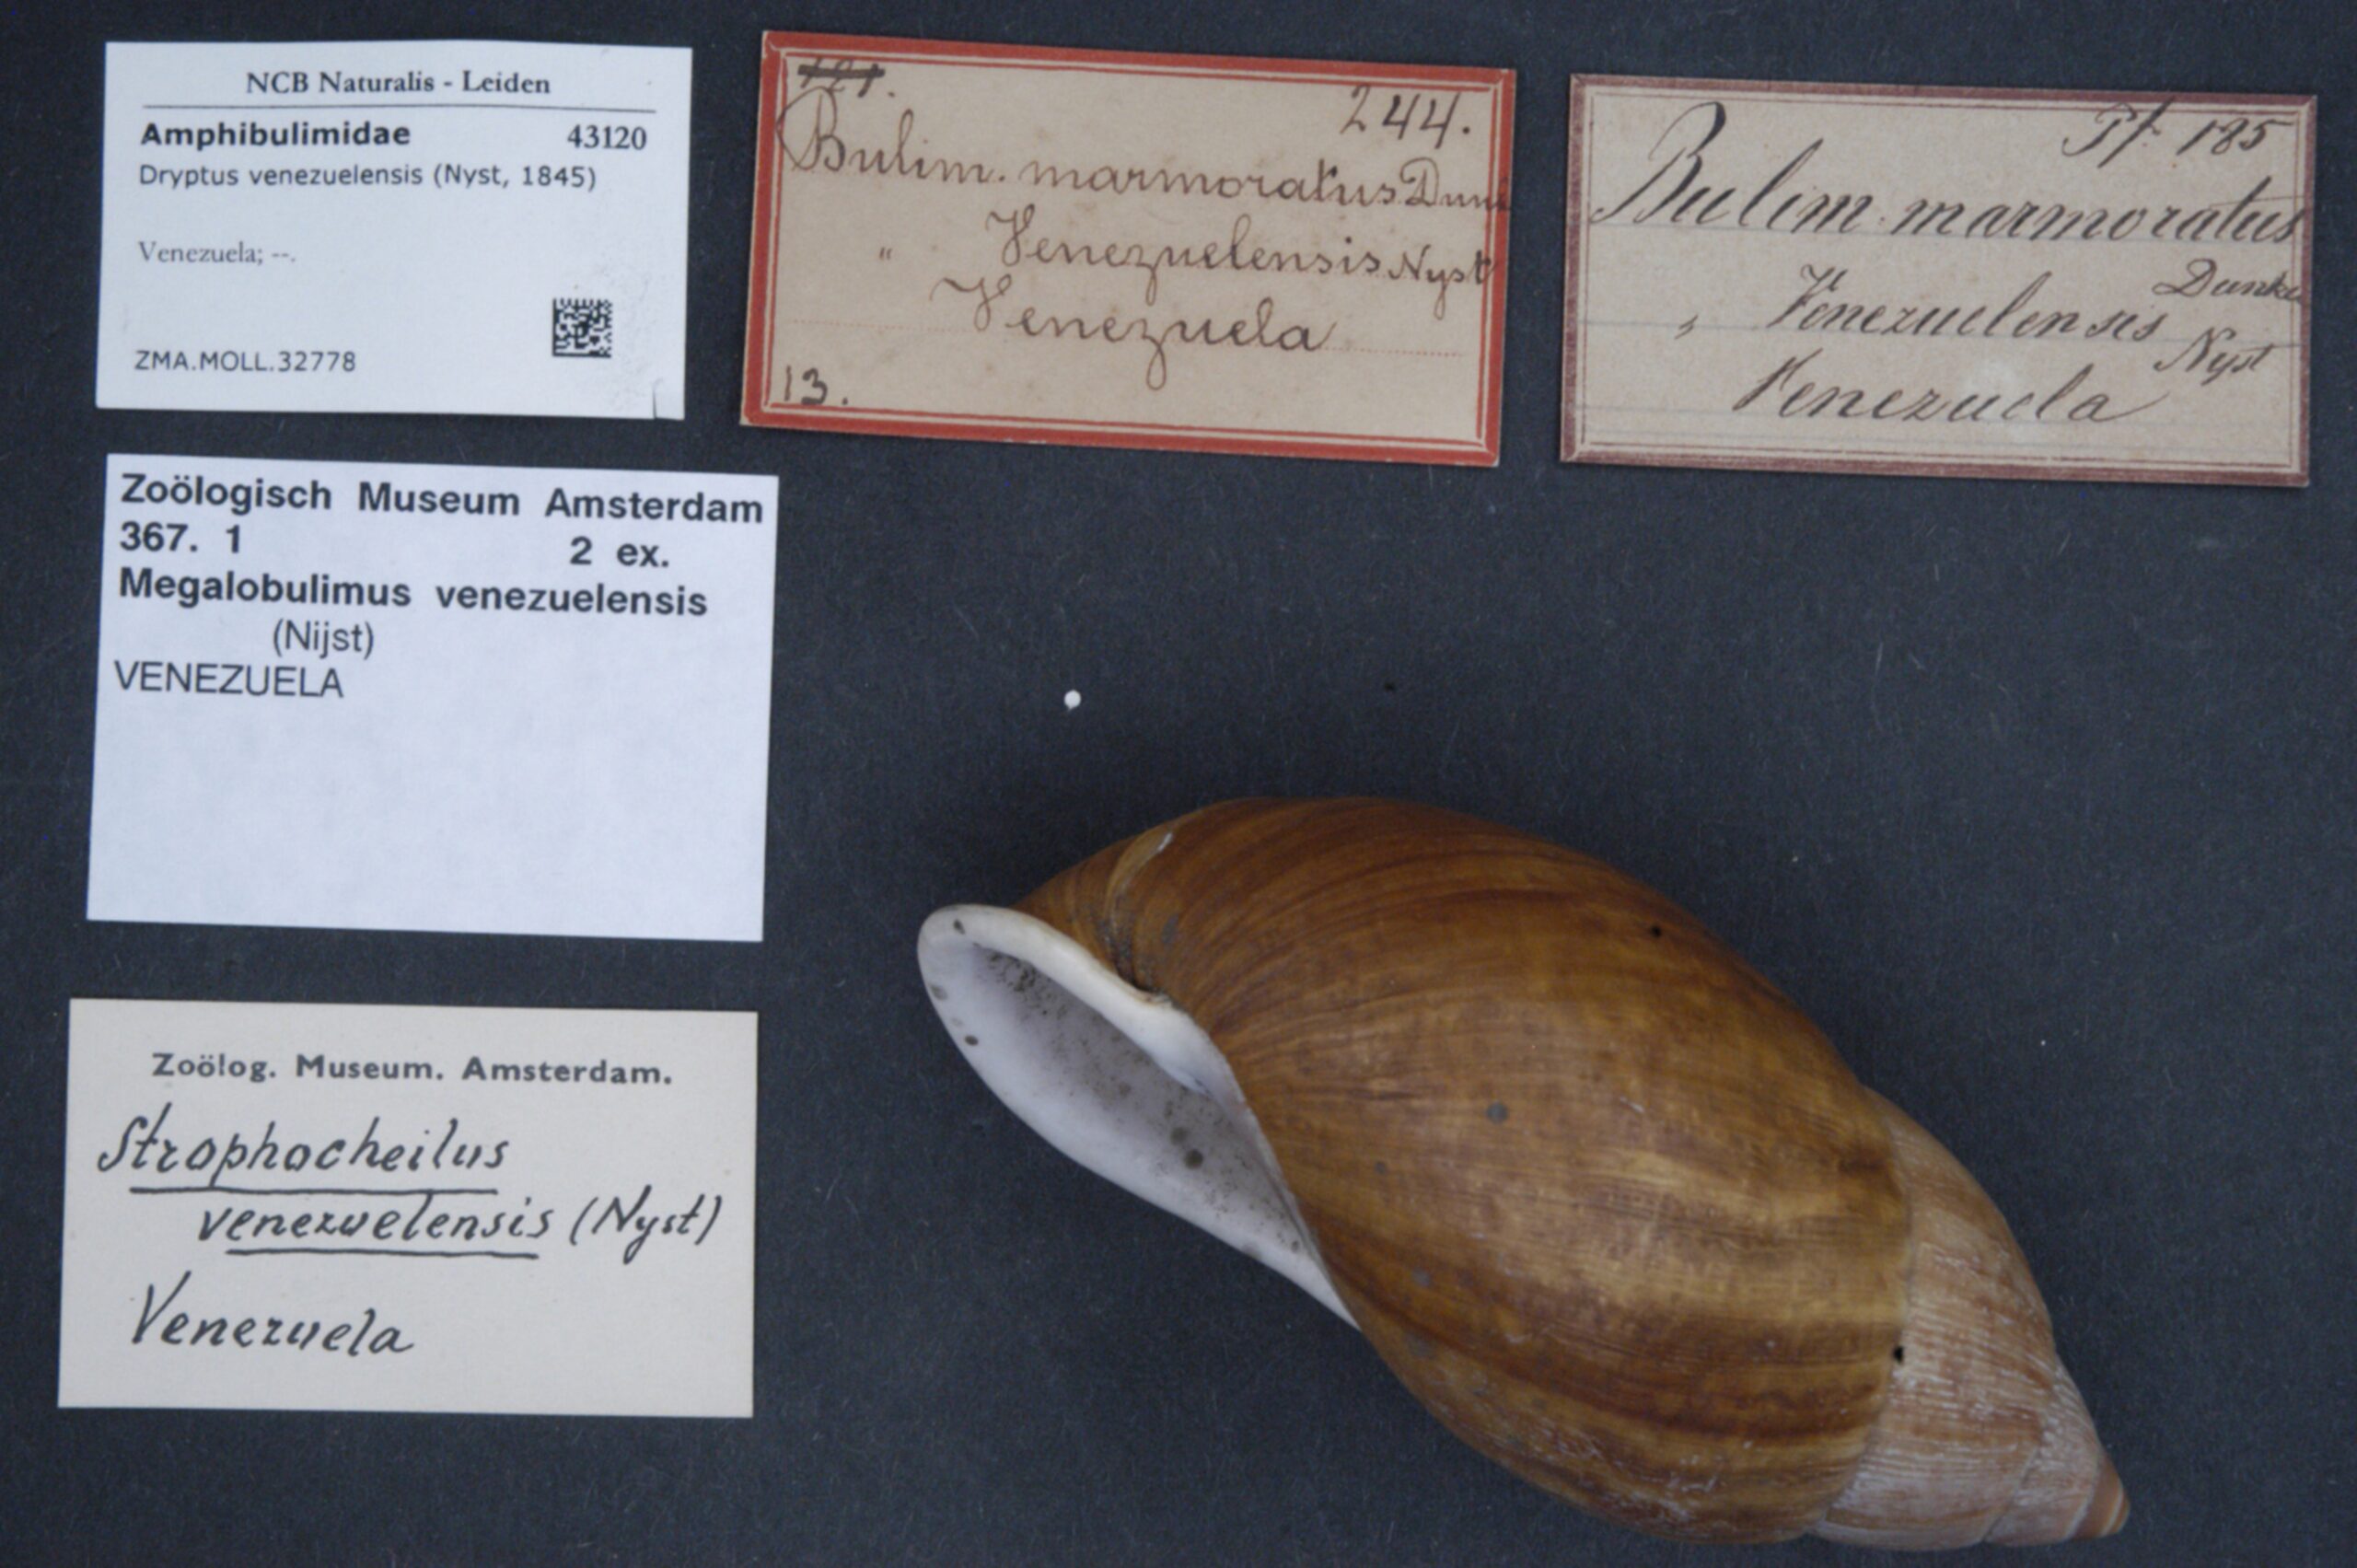 NCB Naturalis - Leiden
Amphibulimidae 43120
Dryptus venezuelensis (Nyst, 1845)
Venezuela; --.
ZMA.MOLL.32778
121.
244.
Bulim. marmoratus Dunk
" Venezuelensis Nyst
Venezuela
13.
Pf. 185
Bulim. marmoratus
Dunker
" Venezuelensis
Nyst
Venezuela
Zoölogisch Museum Amsterdam
367. 1 2 ex.
Megalobulimus venezuelensis
(Nijst)
VENEZUELA
Zoölog. Museum. Amsterdam.
Strophocheilus
venezuelensis (Nyst)
Venezuela